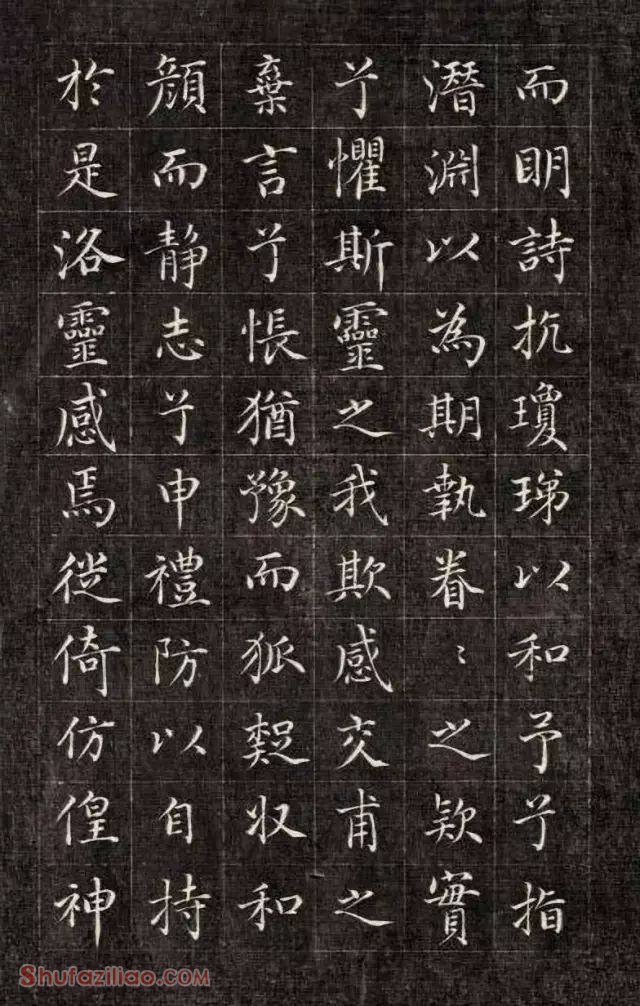 而眀詩抗瓊珶以和予兮指
潛淵以為期執眷〻之欵實
兮懼斯靈之我欺感交甫之
棄言兮悵猶豫而狐疑収和
顏而静志兮申禮防以自持
於是洛靈感焉徙倚仿偟神
Shufaziliao.com